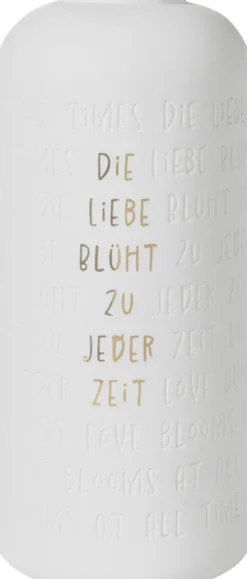 TIMES DIE LIEBE
DIE LIEBE
LIEBE BLÜHT
BLÜHT ZU JEDER
ZU JEDER
JEDER ZEIT
ZEIT LOVE
LOVE BLOOMS
BLOOMS AT ALL
AT ALL TIMES